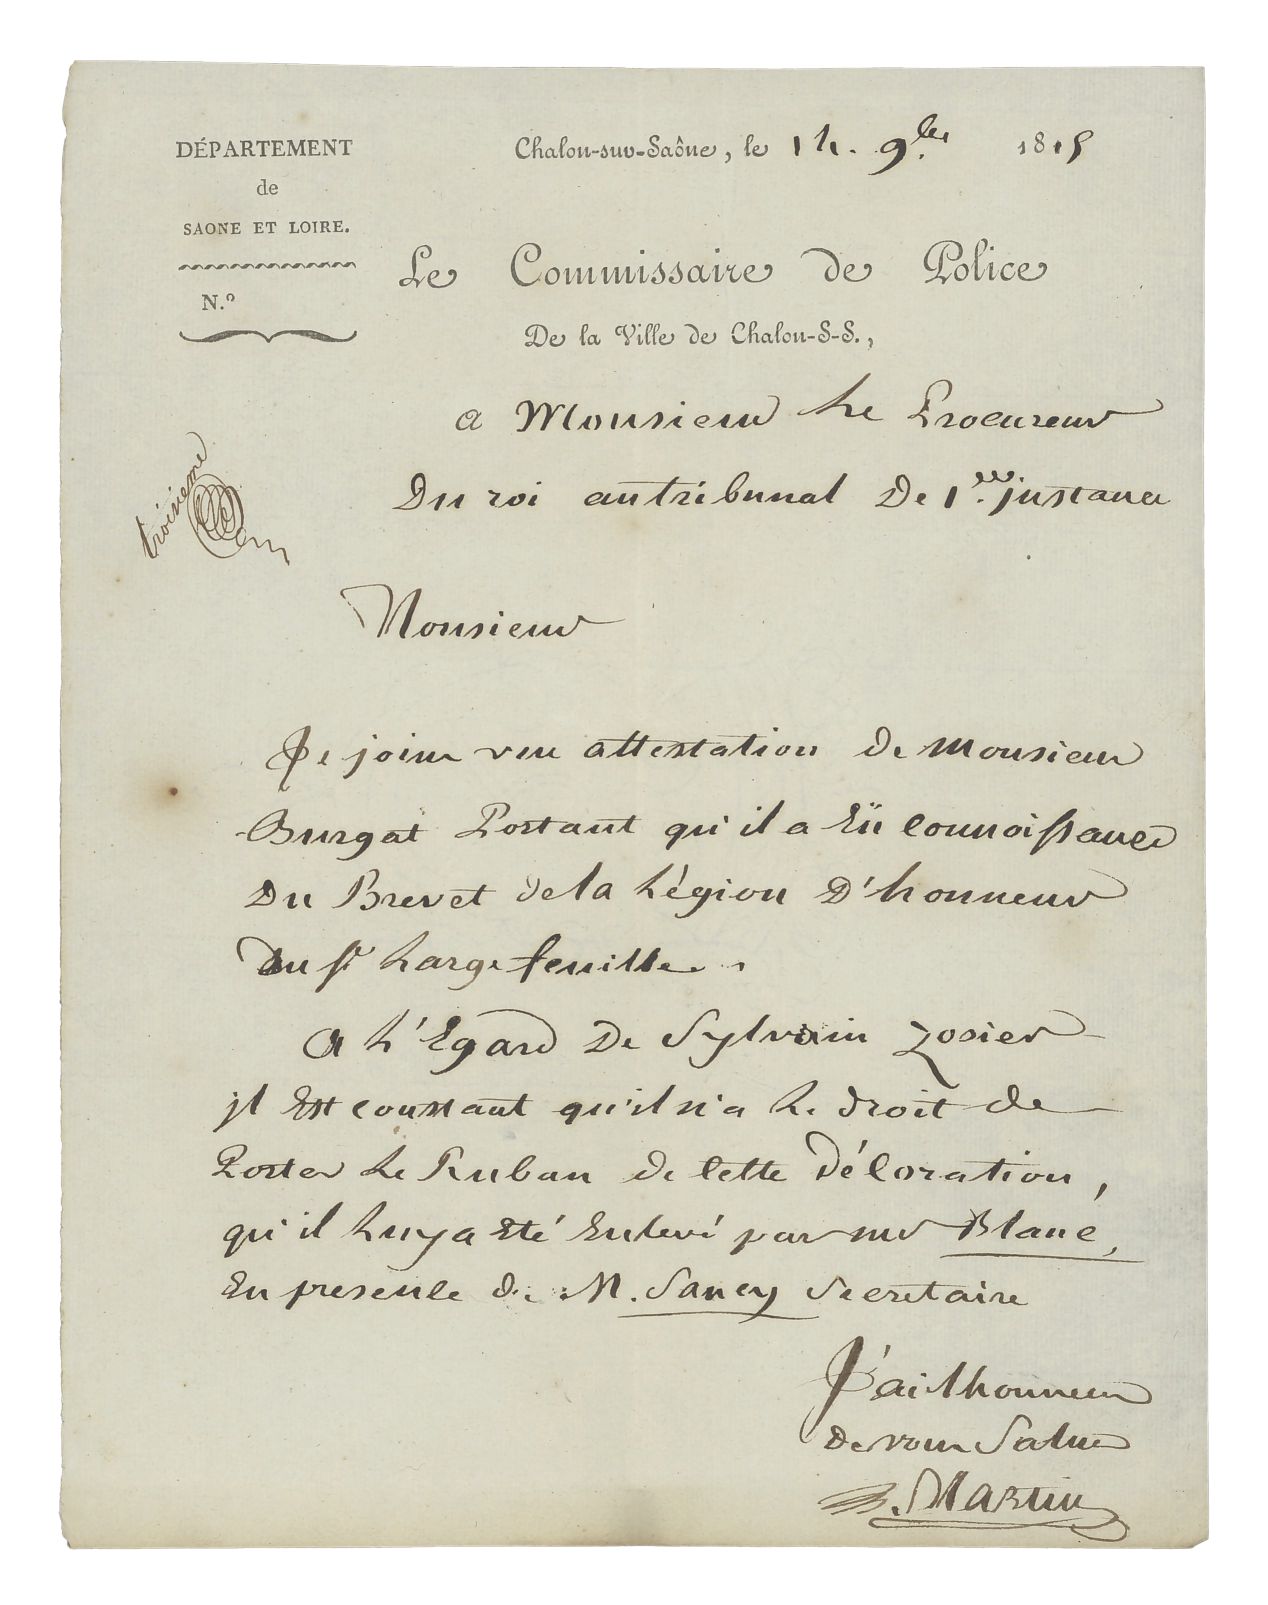 DÉPARTEMENT
de
SAONE ET LOIRE.
N.º
Chalon-sur-Saône, le 14. 9bre. 1815
Le Commissaire de Police
De la Ville de Chalon-S-S.,
a Monsieur Le Procureur
Du roi au tribunal De 1ere. jnstance
troisieme
Monsieur
Je joins une attestation de Monsieur
Burgat Portant qu'il a Eü connoissance
Du Brevet de la Légion D'honneur
Du Sr Largefeuille.
A L'Egard De Sylvain Zosier
jl Est constant qu'il n'a Le droit de
Porter Le Ruban de Cette Décoration,
qu'il Luy a Eté Enlevé par mr Blanc,
En presence de M. Sancy Secretaire
J'ai lhonneur
de vous Saluer
Martin